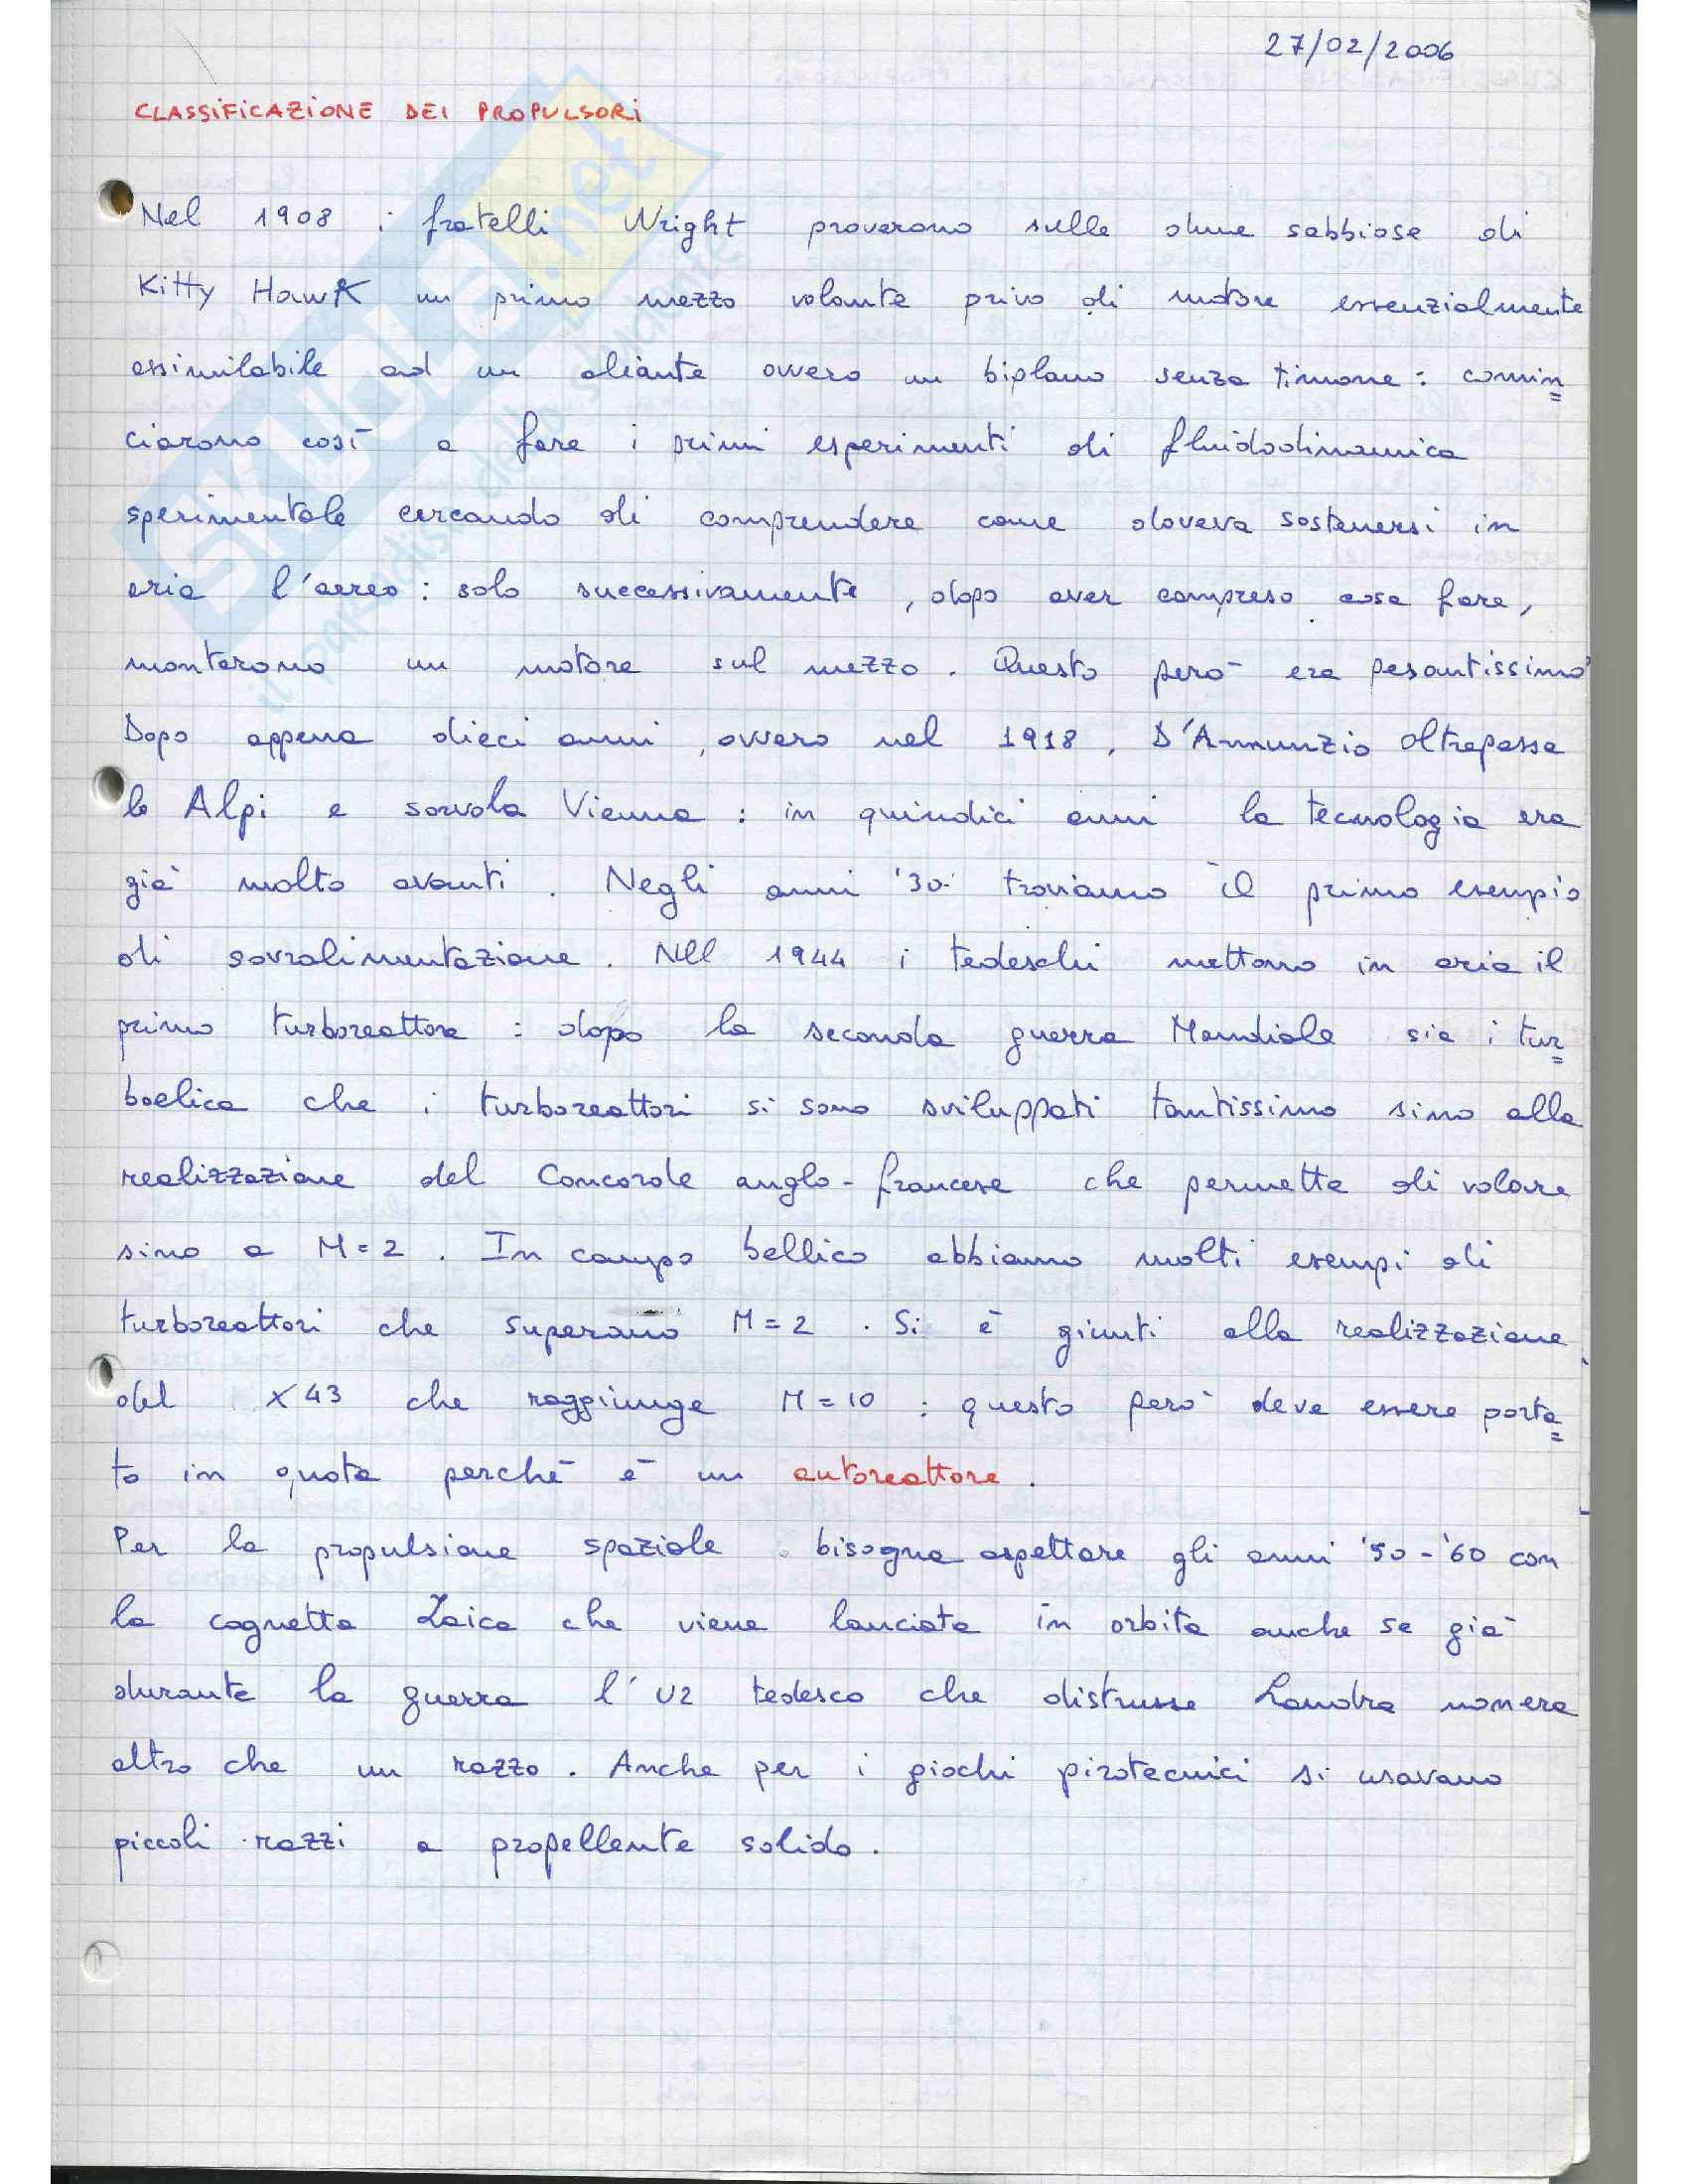 27/02/2006
CLASSIFICAZIONE DEI PROPULSORI
Nel 1908 i fratelli Wright provarono sulle dune sabbiose di
Kitty Hawk un primo mezzo volante privo di motore essenzialmente
assimilabile ad un aliante ovvero un biplano senza timone: comin
ciarono così a fare i primi esperimenti di fluidodinamica
sperimentale cercando di comprendere come doveva sostenersi in
aria l'aereo: solo successivamente, dopo aver compreso cosa fare,
montarono un motore sul mezzo. Questo però era pesantissimo
Dopo appena dieci anni, ovvero nel 1918, D'Annunzio oltrepassa
le Alpi e sorvola Vienna: in quindici anni la tecnologia era
già molto avanti. Negli anni '30 troviamo il primo esempio
di sovralimentazione. Nel 1944 i tedeschi mettono in aria il
primo turboreattore: dopo la seconda guerra Mondiale sia i tur
boelica che i turboreattori si sono sviluppati tantissimo sino alla
realizzazione del Concorde anglo-francese che permette di volare
sino a M=2. In campo bellico abbiamo molti esempi di
turboreattori che superano M=2. Si è giunti alla realizzazione
del X43 che raggiunge M=10: questo però deve essere porta
to in quota perchè è un autoreattore.
Per la propulsione spaziale bisogna aspettare gli anni '50-'60 con
la cagnetta Laica che viene lanciata in orbita anche se già
durante la guerra l'V2 tedesco che distrusse Londra non era
altro che un razzo. Anche per i giochi pirotecnici si usavano
piccoli razzi a propellente solido.
SKUOLA.net
il paradiso dello studente